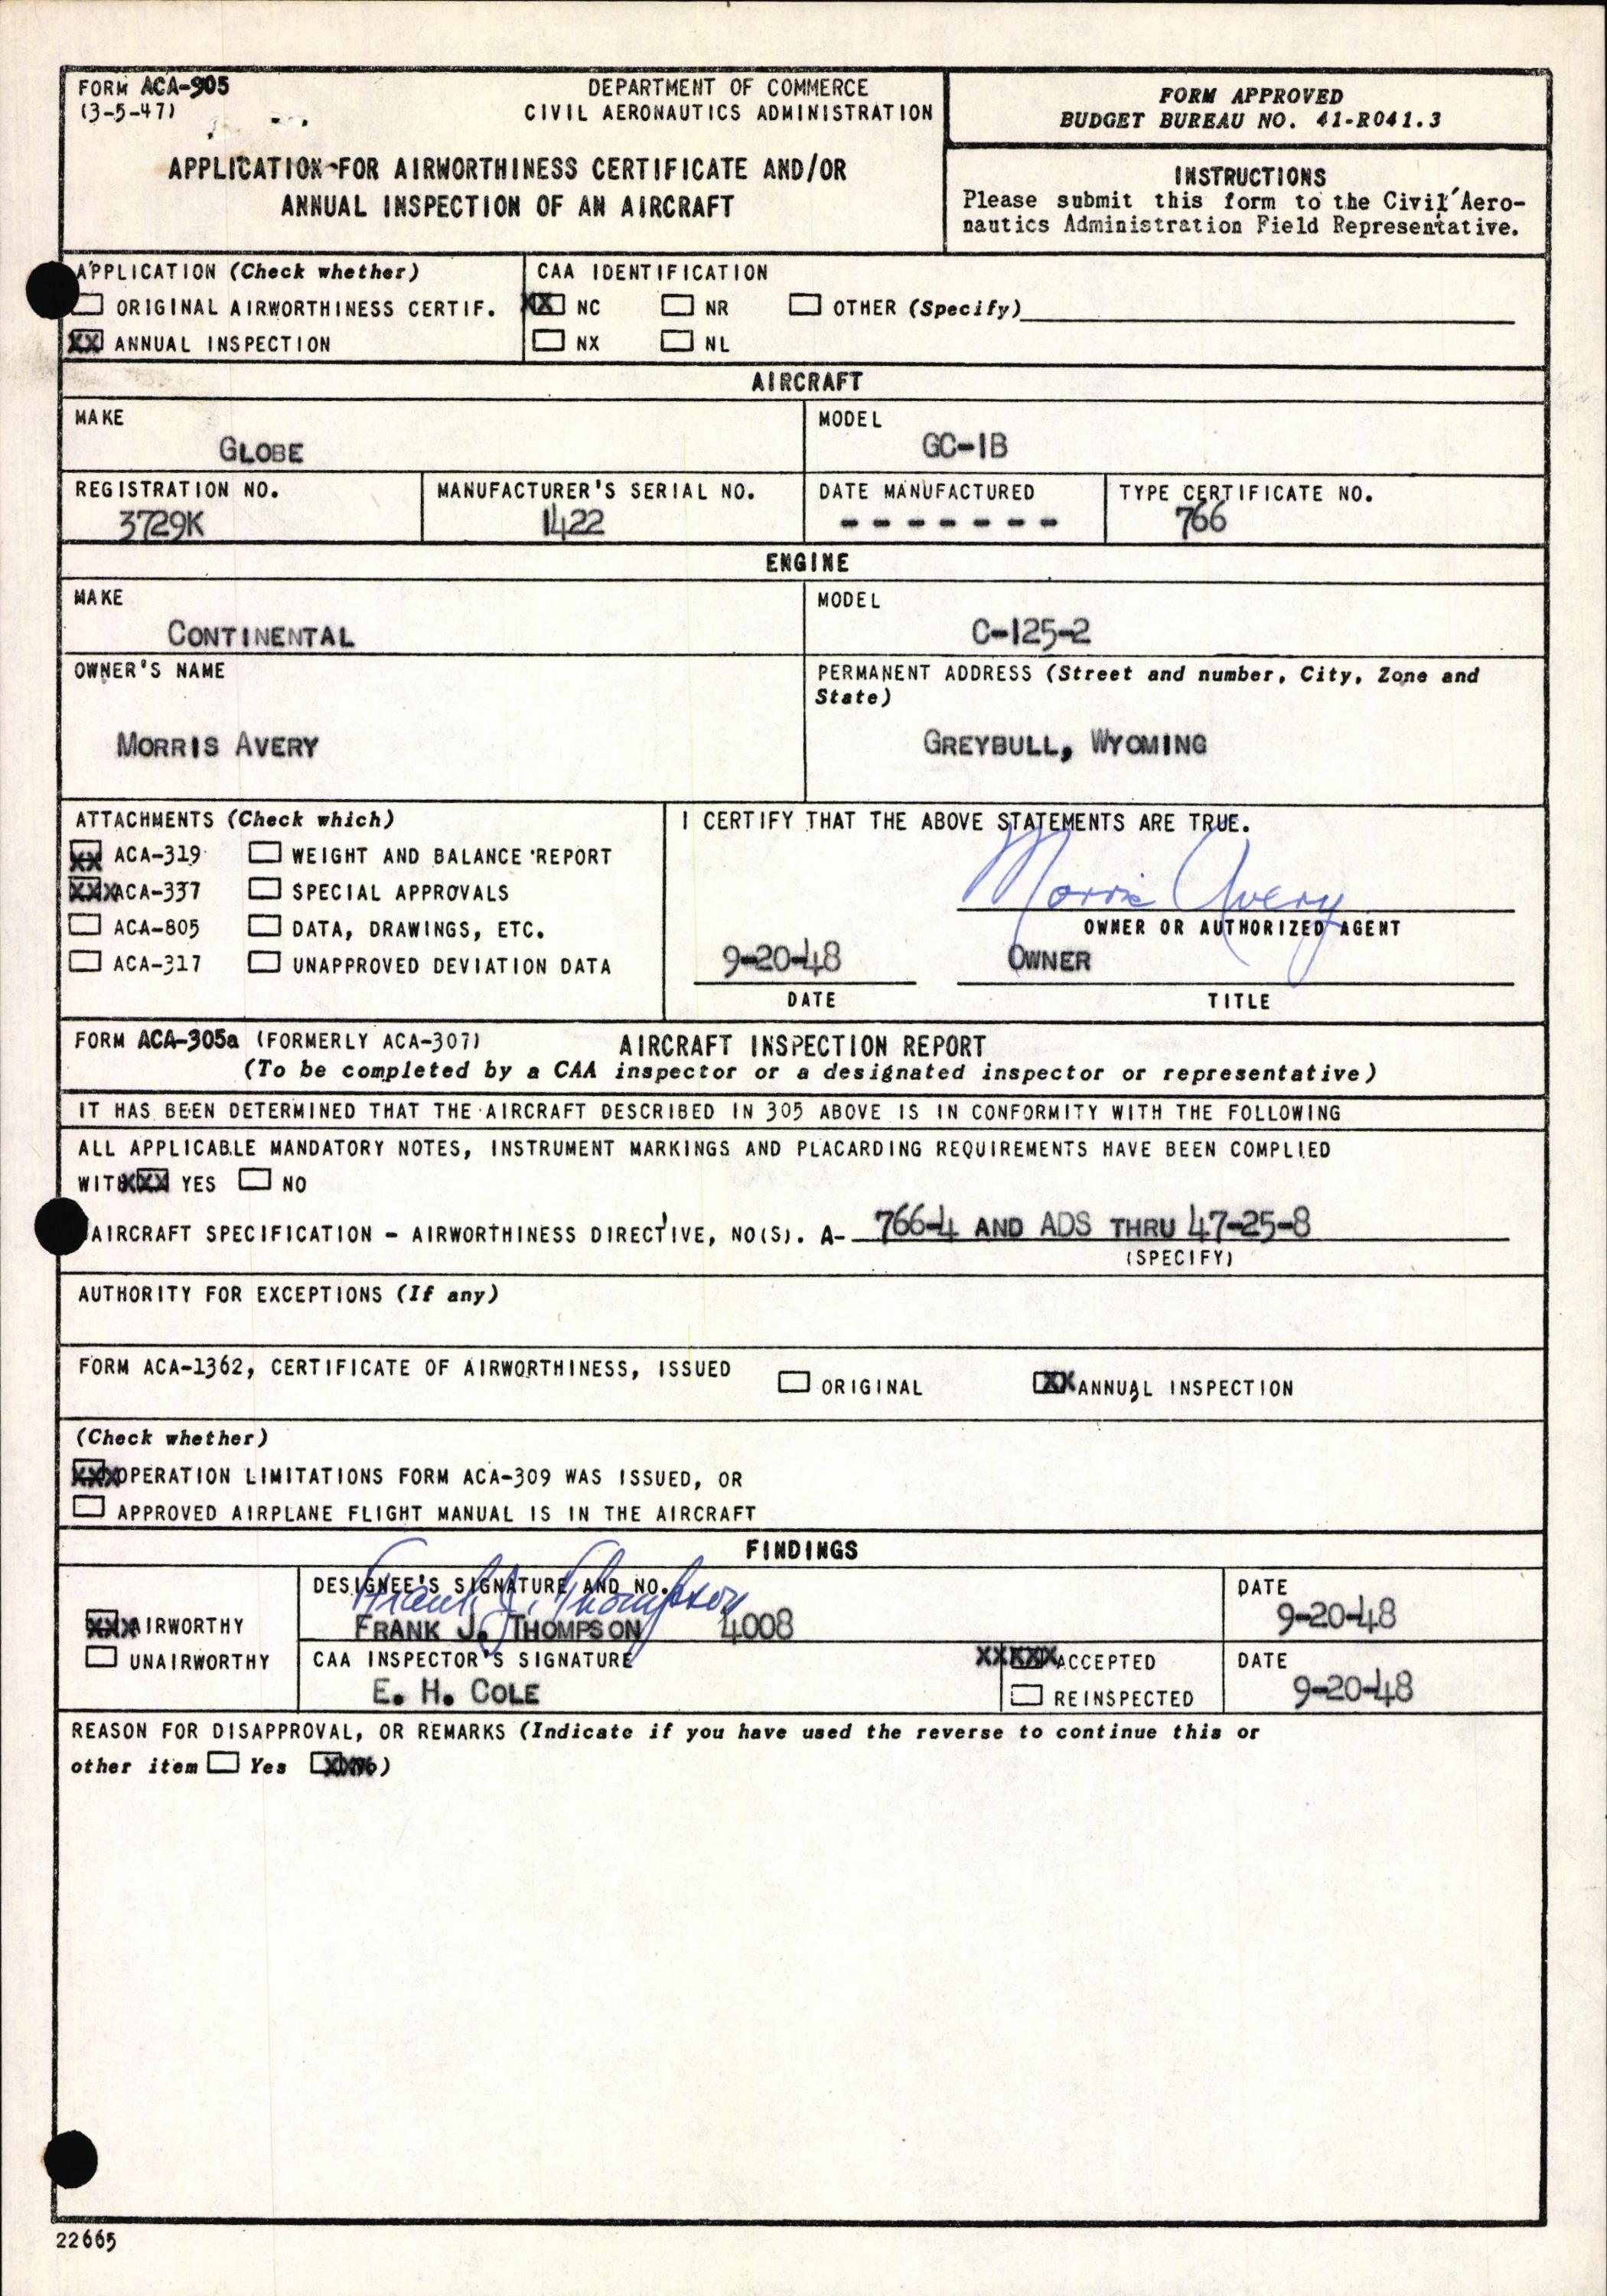 FORM ACA-905
(3-5-47)
DEPARTMENT OF COMMERCE
CIVIL AERONAUTICS ADMINISTRATION
APPLICATION FOR AIRWORTHINESS CERTIFICATE AND/OR
ANNUAL INSPECTION OF AN AIRCRAFT
FORM APPROVED
BUDGET BUREAU NO. 41-R041.3
INSTRUCTIONS
Please submit this form to the Civil Aero-
nautics Administration Field Representative.
APPLICATION (Check whether)
ORIGINAL AIRWORTHINESS CERTIF.
XX ANNUAL INSPECTION
CAA IDENTIFICATION
XX NC NR OTHER (Specify)
NX NL
AIRCRAFT
MAKE
GLOBE
MODEL
GC-1B
REGISTRATION NO.
3729K
MANUFACTURER'S SERIAL NO.
1422
DATE MANUFACTURED
- - - - - - -
TYPE CERTIFICATE NO.
766
ENGINE
MAKE
CONTINENTAL
MODEL
C-125-2
OWNER'S NAME
MORRIS AVERY
PERMANENT ADDRESS (Street and number, City, Zone and
State)
GREYBULL, WYOMING
ATTACHMENTS (Check which)
XX ACA-319 WEIGHT AND BALANCE REPORT
XXX ACA-337 SPECIAL APPROVALS
ACA-805 DATA, DRAWINGS, ETC.
ACA-317 UNAPPROVED DEVIATION DATA
I CERTIFY THAT THE ABOVE STATEMENTS ARE TRUE.
Morris Avery
OWNER OR AUTHORIZED AGENT
9-20-48 OWNER
DATE TITLE
FORM ACA-305a (FORMERLY ACA-307) AIRCRAFT INSPECTION REPORT
(To be completed by a CAA inspector or a designated inspector or representative)
IT HAS BEEN DETERMINED THAT THE AIRCRAFT DESCRIBED IN 305 ABOVE IS IN CONFORMITY WITH THE FOLLOWING
ALL APPLICABLE MANDATORY NOTES, INSTRUMENT MARKINGS AND PLACARDING REQUIREMENTS HAVE BEEN COMPLIED
WITH XXX YES NO
AIRCRAFT SPECIFICATION - AIRWORTHINESS DIRECTIVE, NO(S). A- 766-4 AND ADS THRU 47-25-8
(SPECIFY)
AUTHORITY FOR EXCEPTIONS (If any)
FORM ACA-1362, CERTIFICATE OF AIRWORTHINESS, ISSUED ORIGINAL XX ANNUAL INSPECTION
(Check whether)
XXX OPERATION LIMITATIONS FORM ACA-309 WAS ISSUED, OR
APPROVED AIRPLANE FLIGHT MANUAL IS IN THE AIRCRAFT
FINDINGS
XXX AIRWORTHY
UNAIRWORTHY
DESIGNEE'S SIGNATURE AND NO.
Frank J. Thompson
FRANK J. THOMPSON 4008
DATE
9-20-48
CAA INSPECTOR'S SIGNATURE
E. H. COLE
XXXXX ACCEPTED
REINSPECTED
DATE
9-20-48
REASON FOR DISAPPROVAL, OR REMARKS (Indicate if you have used the reverse to continue this or
other item Yes XX No)
22665